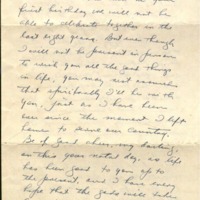 first birthday we will not be
able to celebrate together in the
last eight years. But even though
I will not be present in person
to wish you all the good things
in life, you may rest assured
that spiritually I'll be with
you, just as I have been
ever since the moment I left
home to serve our Country.
Be of good cheer, my darling,
on this your natal day, as life
has been good to you up to
the present, and I have every
hope that the gods will